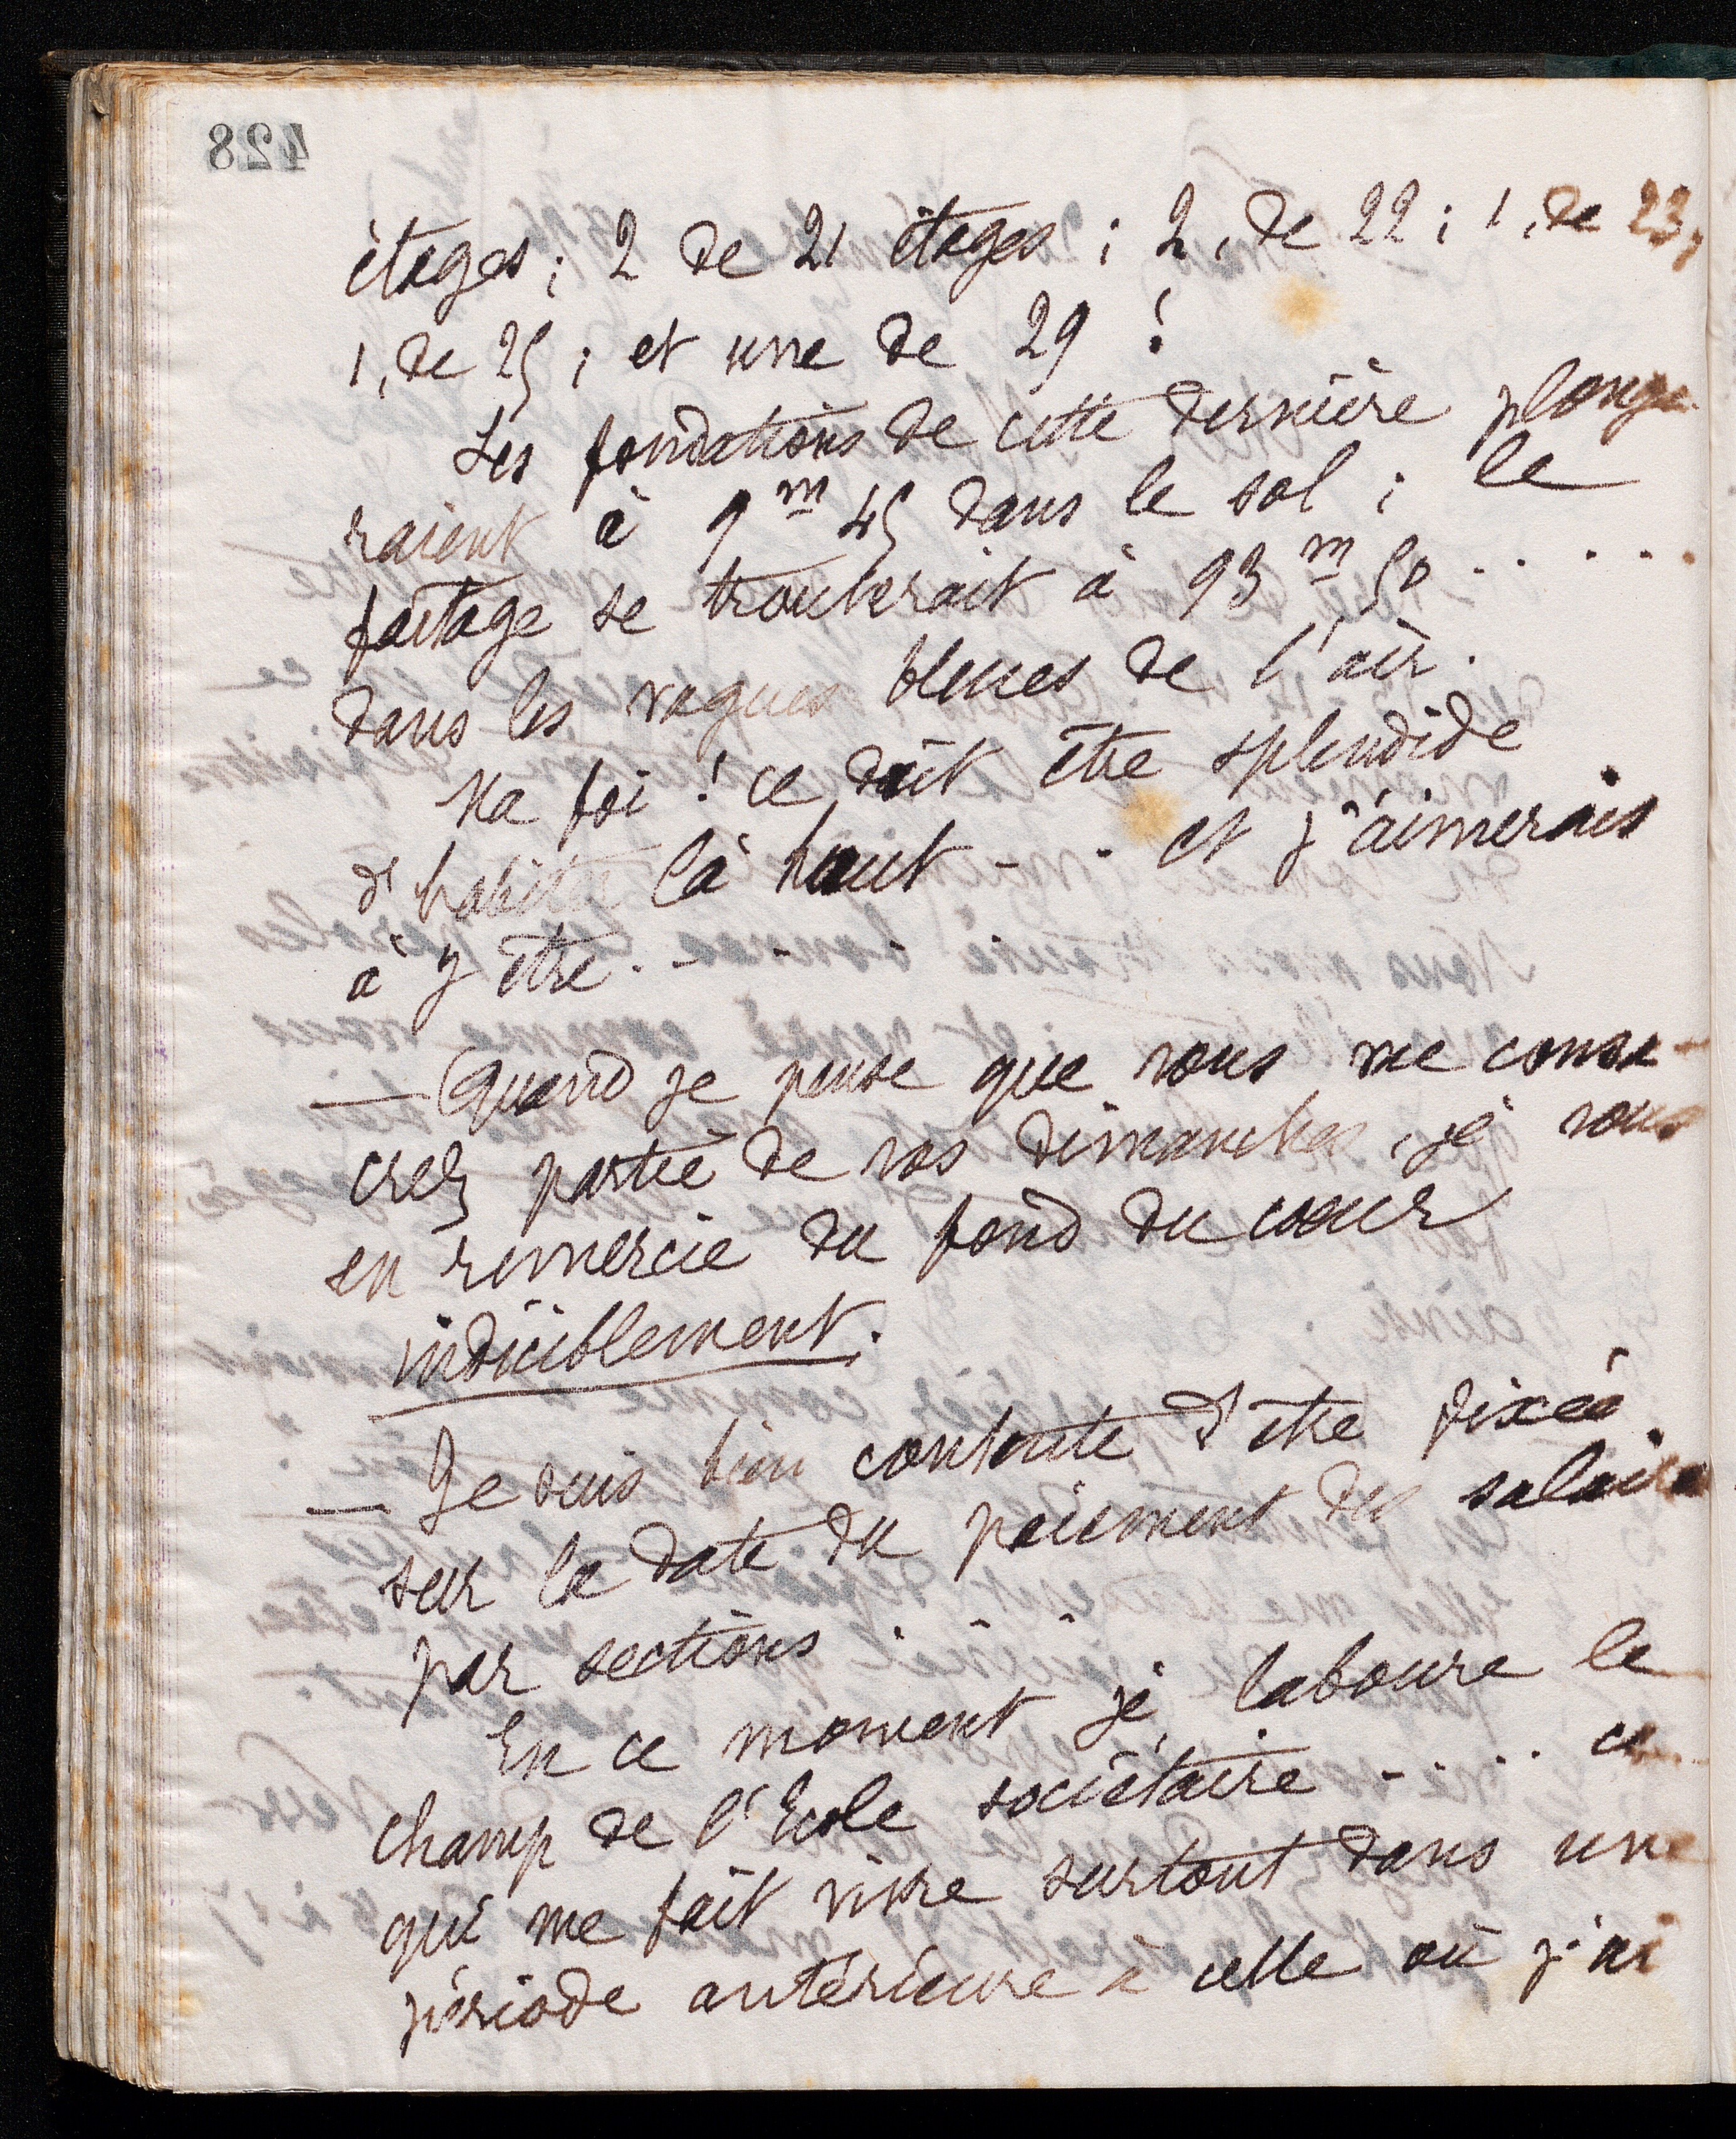 428
étages ; 2 de 21 étages ; 2, de 22 ; 1, de 23,
1, de 25 ; et une de 29 !
Les fondations de cette dernière plonge-
raient à 9 m 45 dans le sol ; le
faitage se trouverait à 93 m 50 . . . . .
dans les vagues bleues de l'air.
Ma foi ! ce doit être splendide
d'habiter là haut - - et j'aimerais
à y être. - - -
— Quand je pense que vous me consa-
crez partie de vos dimanches, je vous
en remercie du fond du cœur
indiciblement.
— Je suis bien contente d'être fixée
sur la date du paiement des salaires
par sections . - -
En ce moment je laboure le
champ de l'Ecole sociétaire - . . . ce
qui me fait vivre surtout dans une
période antérieure à celle où j'ai